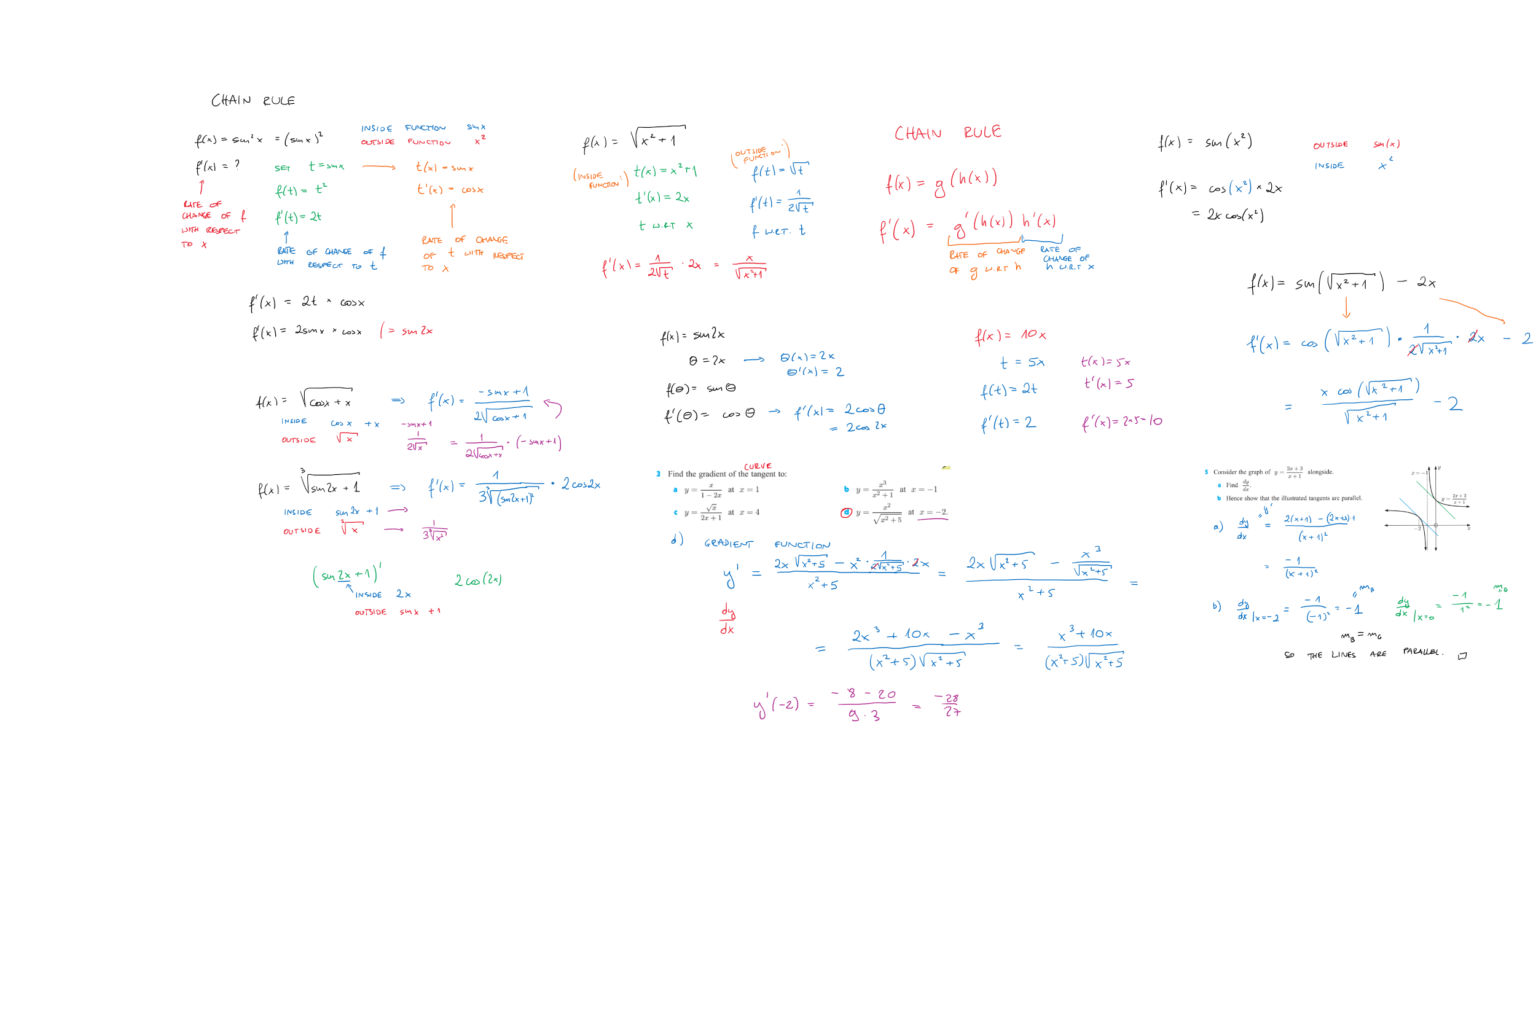 CHAIN RULE
f(x) = sin²x = (sinx)²
INSIDE FUNCTION sinx
OUTSIDE FUNCTION x²
f'(x) = ?
SET t = sinx
t(x) = sinx
f(t) = t²
t'(x) = cosx
f'(t) = 2t
RATE OF
CHANGE OF f
WITH RESPECT
TO x
RATE OF CHANGE OF f
WITH RESPECT TO t
RATE OF CHANGE
OF t WITH RESPECT
TO x
f'(x) = 2t * cosx
f'(x) = 2sinx * cosx (= sin2x
f(x) = √(cosx + x) ⇒ f'(x) = (-sinx+1)/(2√(cosx+1))
INSIDE cosx + x
OUTSIDE √x
-sinx+1
1/(2√x) = 1/(2√(cosx+x)) · (-sinx+1)
f(x) = ³√(sin2x + 1) ⇒ f'(x) = 1/(3³√(sin2x+1)²) · 2cos2x
INSIDE sin2x + 1 →
OUTSIDE ³√x → 1/(3³√x²)
(sin2x + 1)' 2cos(2x)
INSIDE 2x
OUTSIDE sinx + 1
f(x) = √(x²+1)
(INSIDE FUNCTION:) t(x) = x²+1
t'(x) = 2x
t W.R.T x
(OUTSIDE FUNCTION:)
f(t) = √t
f'(t) = 1/(2√t)
f W.R.T. t
f'(x) = 1/(2√t) · 2x = x/√(x²+1)
CHAIN RULE
f(x) = g(h(x))
f'(x) = g'(h(x)) h'(x)
RATE OF CHANGE
OF g W.R.T h
RATE OF
CHANGE OF
h W.R.T x
f(x) = sin2x
θ = 2x → θ(x) = 2x
θ'(x) = 2
f(θ) = sinθ
f'(θ) = cosθ → f'(x) = 2cosθ
= 2cos2x
f(x) = 10x
t = 5x t(x) = 5x
f(t) = 2t t'(x) = 5
f'(t) = 2 f'(x) = 2*5=10
CURVE
2 Find the gradient of the tangent to:
a y = x/(1 − 2x) at x = 1
b y = x³/(x² + 1) at x = −1
c y = √x/(2x + 1) at x = 4
d y = x²/√(x² + 5) at x = −2.
d) GRADIENT FUNCTION
y' = (2x√(x²+5) − x² · 1/(2√(x²+5)) · 2x)/(x²+5) = (2x√(x²+5) − x³/√(x²+5))/(x²+5) =
dy/dx
= (2x³ + 10x − x³)/((x²+5)√(x²+5)) = (x³+10x)/((x²+5)√(x²+5))
y'(-2) = (-8 - 20)/(9·3) = -28/27
f(x) = sin(x²)
OUTSIDE sin(x)
INSIDE x²
f'(x) = cos(x²) * 2x
= 2x cos(x²)
f(x) = sin(√(x²+1)) − 2x
f'(x) = cos(√(x²+1)) · 1/(2√(x²+1)) · 2x − 2
= (x cos(√(x²+1)))/√(x²+1) − 2
5 Consider the graph of y = (2x + 3)/(x + 1) alongside.
a Find dy/dx.
b Hence show that the illustrated tangents are parallel.
x = −1
y
y = (2x + 3)/(x + 1)
−2
0
x
a) dy/dx = y' = (2(x+1) − (2x+3)·1)/(x+1)²
= -1/(x+1)²
b) dy/dx |x=-2 = -1/(-1)² = -1 m_B
dy/dx |x=0 = -1/1² = -1 m_G
m_B = m_G
SO THE LINES ARE PARALLEL. □